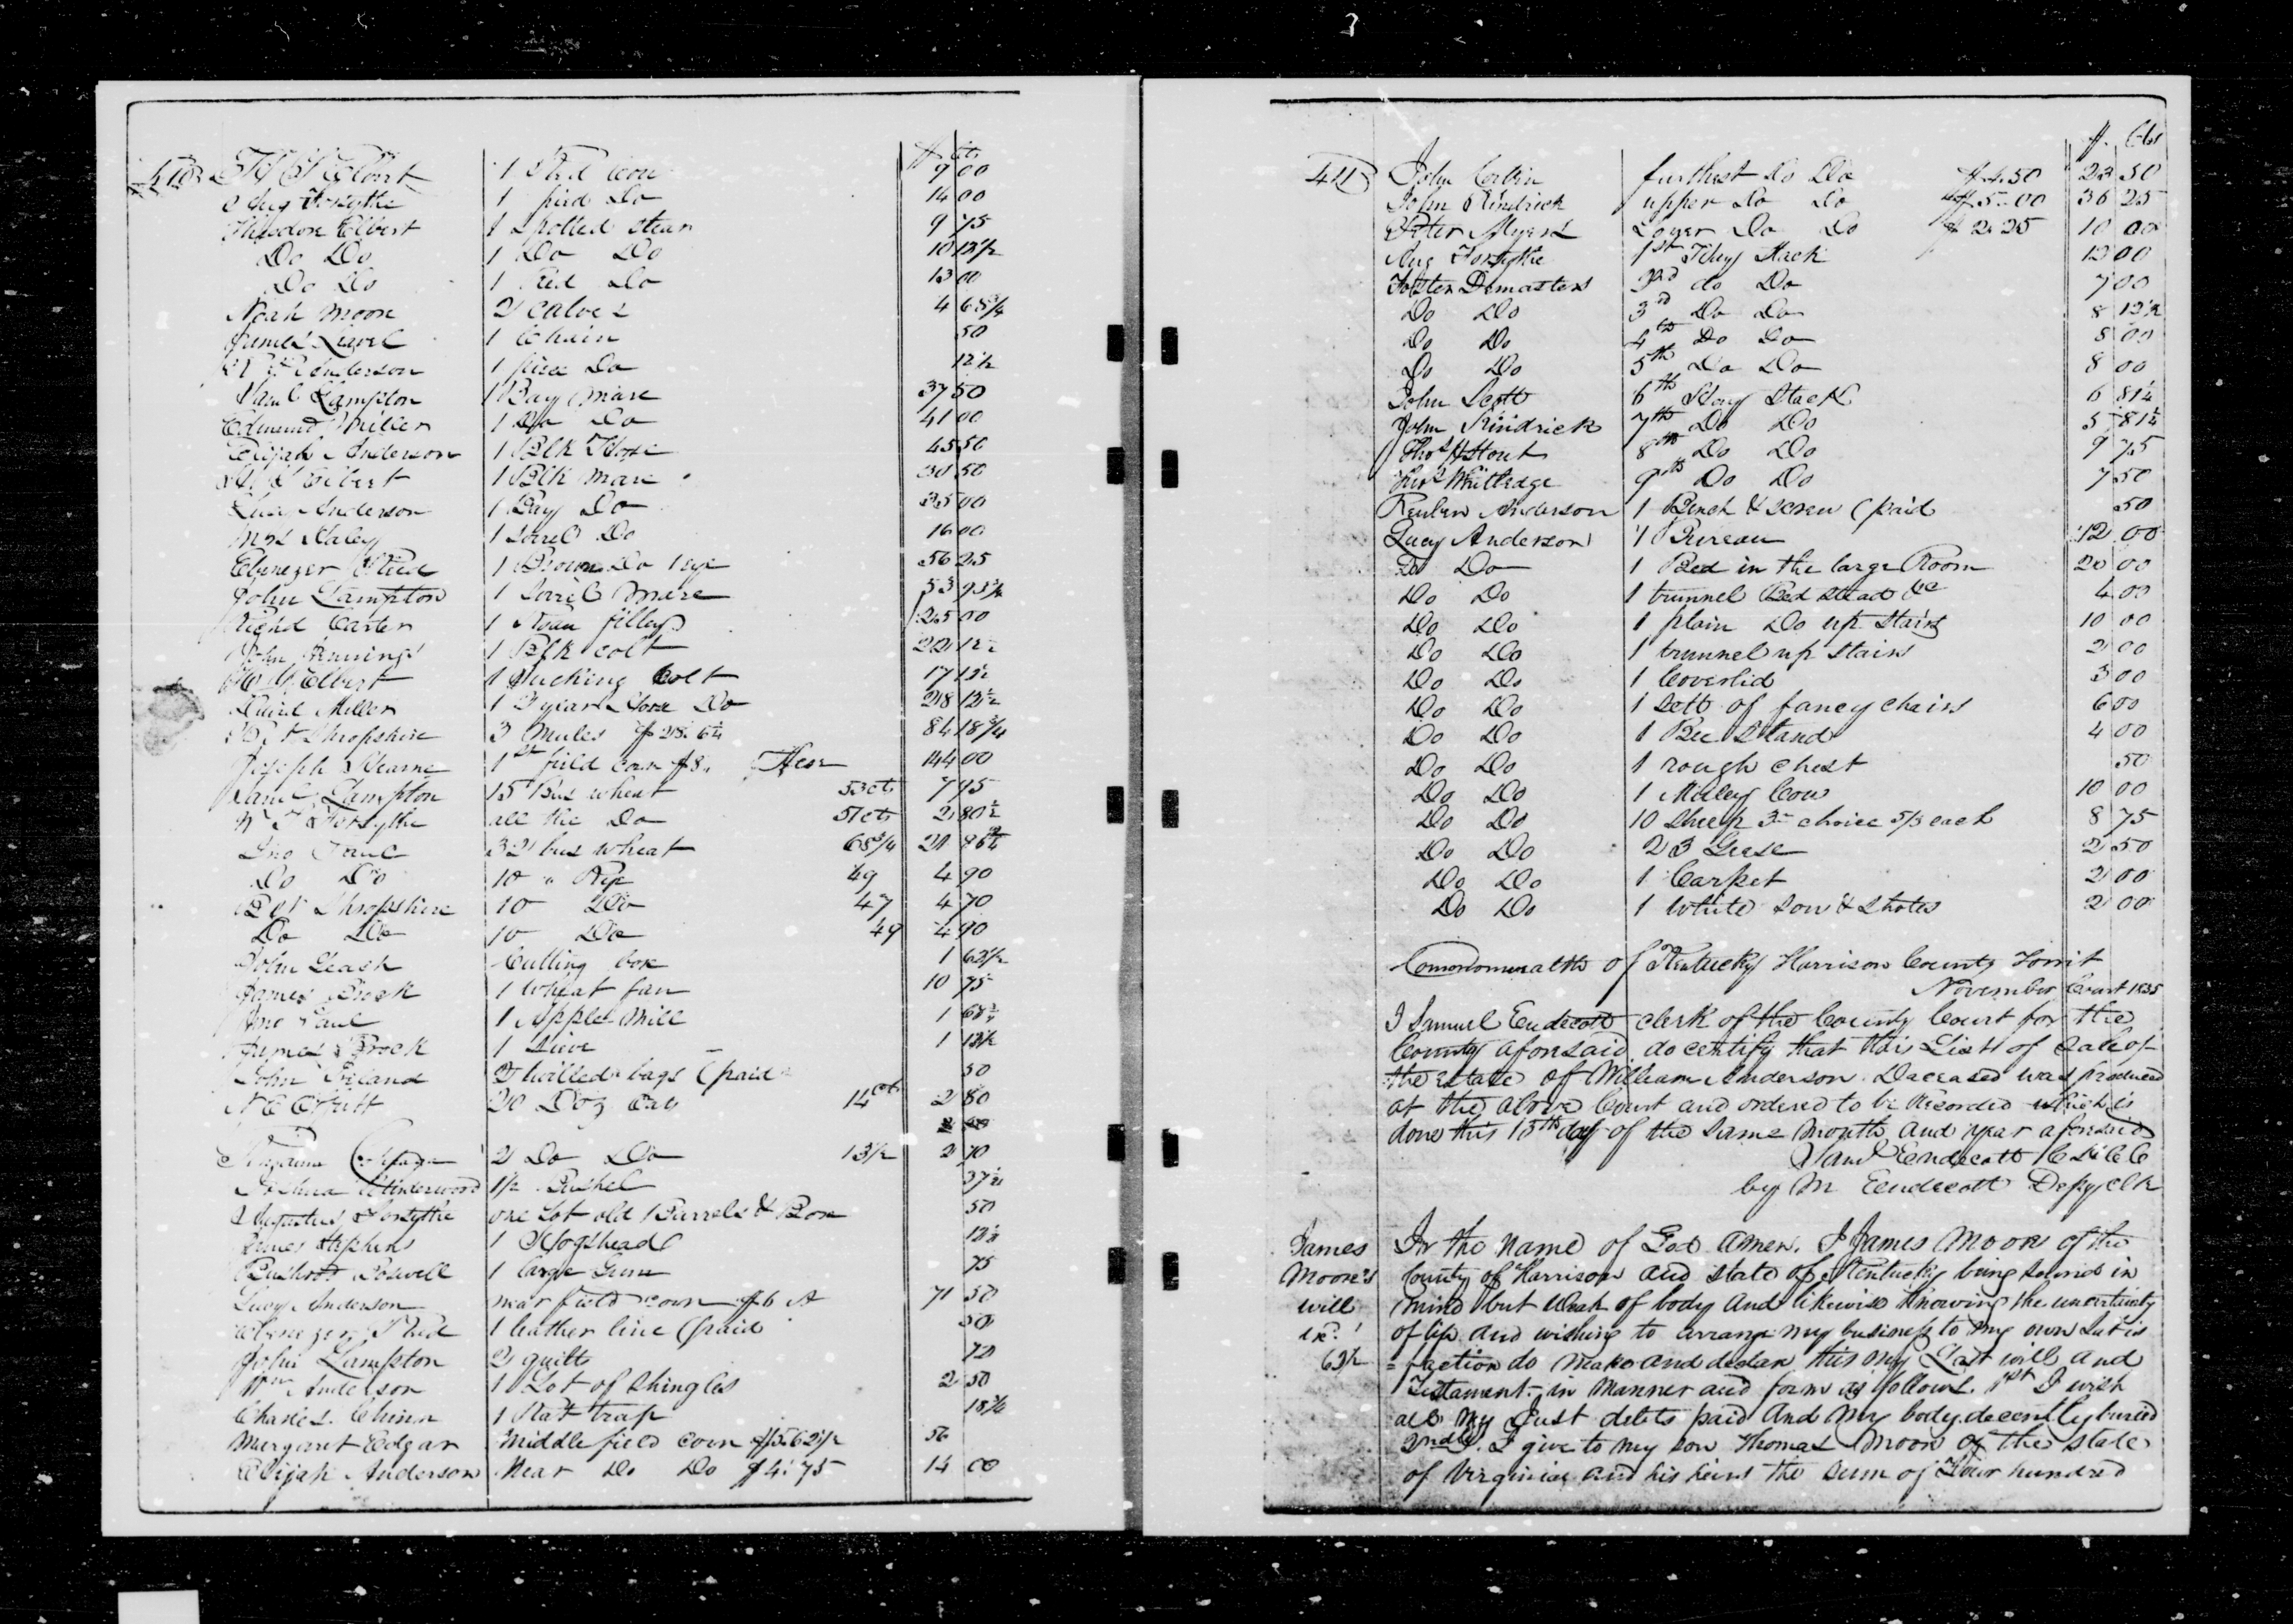 3
410
$ cts
1 Red Cow 9 00
Aug Forsythe 1 pied Do 14 00
Theodore Elbert 1 Spotted Stear 9 75
Do Do 1 Do Do 10 12 1/2
Do Do 1 Red Do 13 00
Noah Moore 2 Calves 4 68 3/4
James 1 Chain 50
Henderson 1 piece Do 12 1/2
Saml Lampton 1 Bay Mare 37 50
Edmund Miller 1 Do Do 41 00
Elijah Anderson 1 Blk Horse 45 50
Elbert 1 Blk mare 30 50
Anderson 1 Bay Do 35 00
Mrs Haley 1 Sorrel Do 16 00
Ebenezer 1 Brown Do 1 eye 56 25
John Lampton 1 Sorrel Mare 53 93 3/4
Richd Carter 1 Roan filley 25 00
John 1 Blk colt 22 12 1/2
Elbert 1 Sucking Colt 17 12 1/2
David Miller 1 2 year Do 28 12 1/2
Shropshire 3 Mules 84 18 3/4
Joseph Hearne 1st field corn $8. 144 00
Saml Lampton 15 Bus wheat 53 cts 7 95
Forsythe all the Do 51 cts 2 80 1/2
Jno Paul 32 bus wheat 68 3/4 21
Do Do 10 " Rye 49 4 90
Shropshire 10 Do 47 4 70
Do Do 10 Do 49 4 90
John Leach Cutting box 1 62 1/2
James 1 Wheat fan 10 75
Jno Paul 1 Apple Mill 1
James Brock 1 Sieve 1 12 1/2
John 2 twilled bags (paid 50
N C Offutt 20 Doz Oats 14 cts 2 80
2 Do Do 13 1/2 2 70
Joshua Underwood 1/2 Bushel 37 1/2
Augustus Forsythe one Lot old Barrels & Box 50
James Stephens 1 Hogshead 12 1/2
Bushrod Boswell 1 large Gum 75
Lucy Anderson near field corn $6 71 50
Ebenezer 1 leather line (paid 50
John Lampton 2 quilts
Wm Anderson 1 Lot of Shingles 2 50
Charles Chinn 1 Rat trap 18 3/4
Margaret Edgar Middle field corn $5.62 1/2 56
Elijah Anderson Near Do Do $4.75 14 00
411
$ Cts
John Corbin furthest Do Do $4.50 23 50
John Kindrick upper Do Do $5.00 36 25
Peter Myers Loyer Do Do $2.25 10 00
Aug Forsythe 1st Hay Stack 12 00
Foster Demasters 2nd do Do 7 00
Do Do 3rd Do Do 8 12 1/2
Do Do 4th Do Do 8 00
Do Do 5th Do Do 8 00
John Scott 6th Hay Stack 6 81 1/4
John Kindrick 7th Do Do 5 81 1/4
Thos H Stout 8th Do Do 9 75
Whittedge 9th Do Do 7 50
Reuben Anderson 1 Bench & Screw (paid 50
Lucy Anderson 1 Bureau 12 00
Do Do 1 Bed in the large Room 20 00
Do Do 1 trunnel Bed Stead &c 4 00
Do Do 1 plain Do up Stairs 10 00
Do Do 1 trunnel up Stairs 2 00
Do Do 1 Coverlid 3 00
Do Do 1 Sett of fancy chairs 6 00
Do Do 1 Bee Stand 4 00
Do Do 1 rough chest 50
Do Do 1 Muley Cow 10 00
Do Do 10 Sheep 3rd choice 5/3 each 8 75
Do Do 23 Geese 2 50
Do Do 1 Carpet 2 00
Do Do 1 white Sow & Shotes 2 00
Commonwealth of Kentucky Harrison County Towit
November Court 1835
I Samuel Endecott clerk of the County Court for the
County aforesaid do certify that this List of Sale of
the estate of William Anderson Deceased was produced
at the above Court and ordered to be Recorded which is
done this 15th day of the Same Month and year aforesaid
Saml Endecott C H C C
by M Endecott Depy clk
James
Moore's
will
ex.
62 1/2
In the name of God Amen. I James Moore of the
County of Harrison and state of Kentucky being Sound in
mind but Weak of body And likewise Knowing the uncertainty
of life and wishing to arrange my business to my own Satis
=faction do Make and declare this my Last will and
Testament in Manner and form as follows. 1st I wish
all my Just debts paid And My body decently buried
2ndly. I give to my son Thomas Moore of the state
of Virginia and his heirs the sum of Four hundred